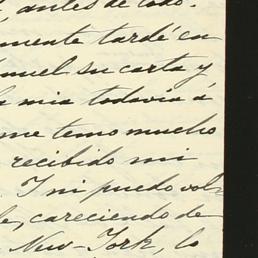 , antes de todo.
mente tardé en
nuel su carta y
la mia todavia á
me temo mucho
recibido mi
I ni puedo vol-
le, careciendo de
New-York, lo